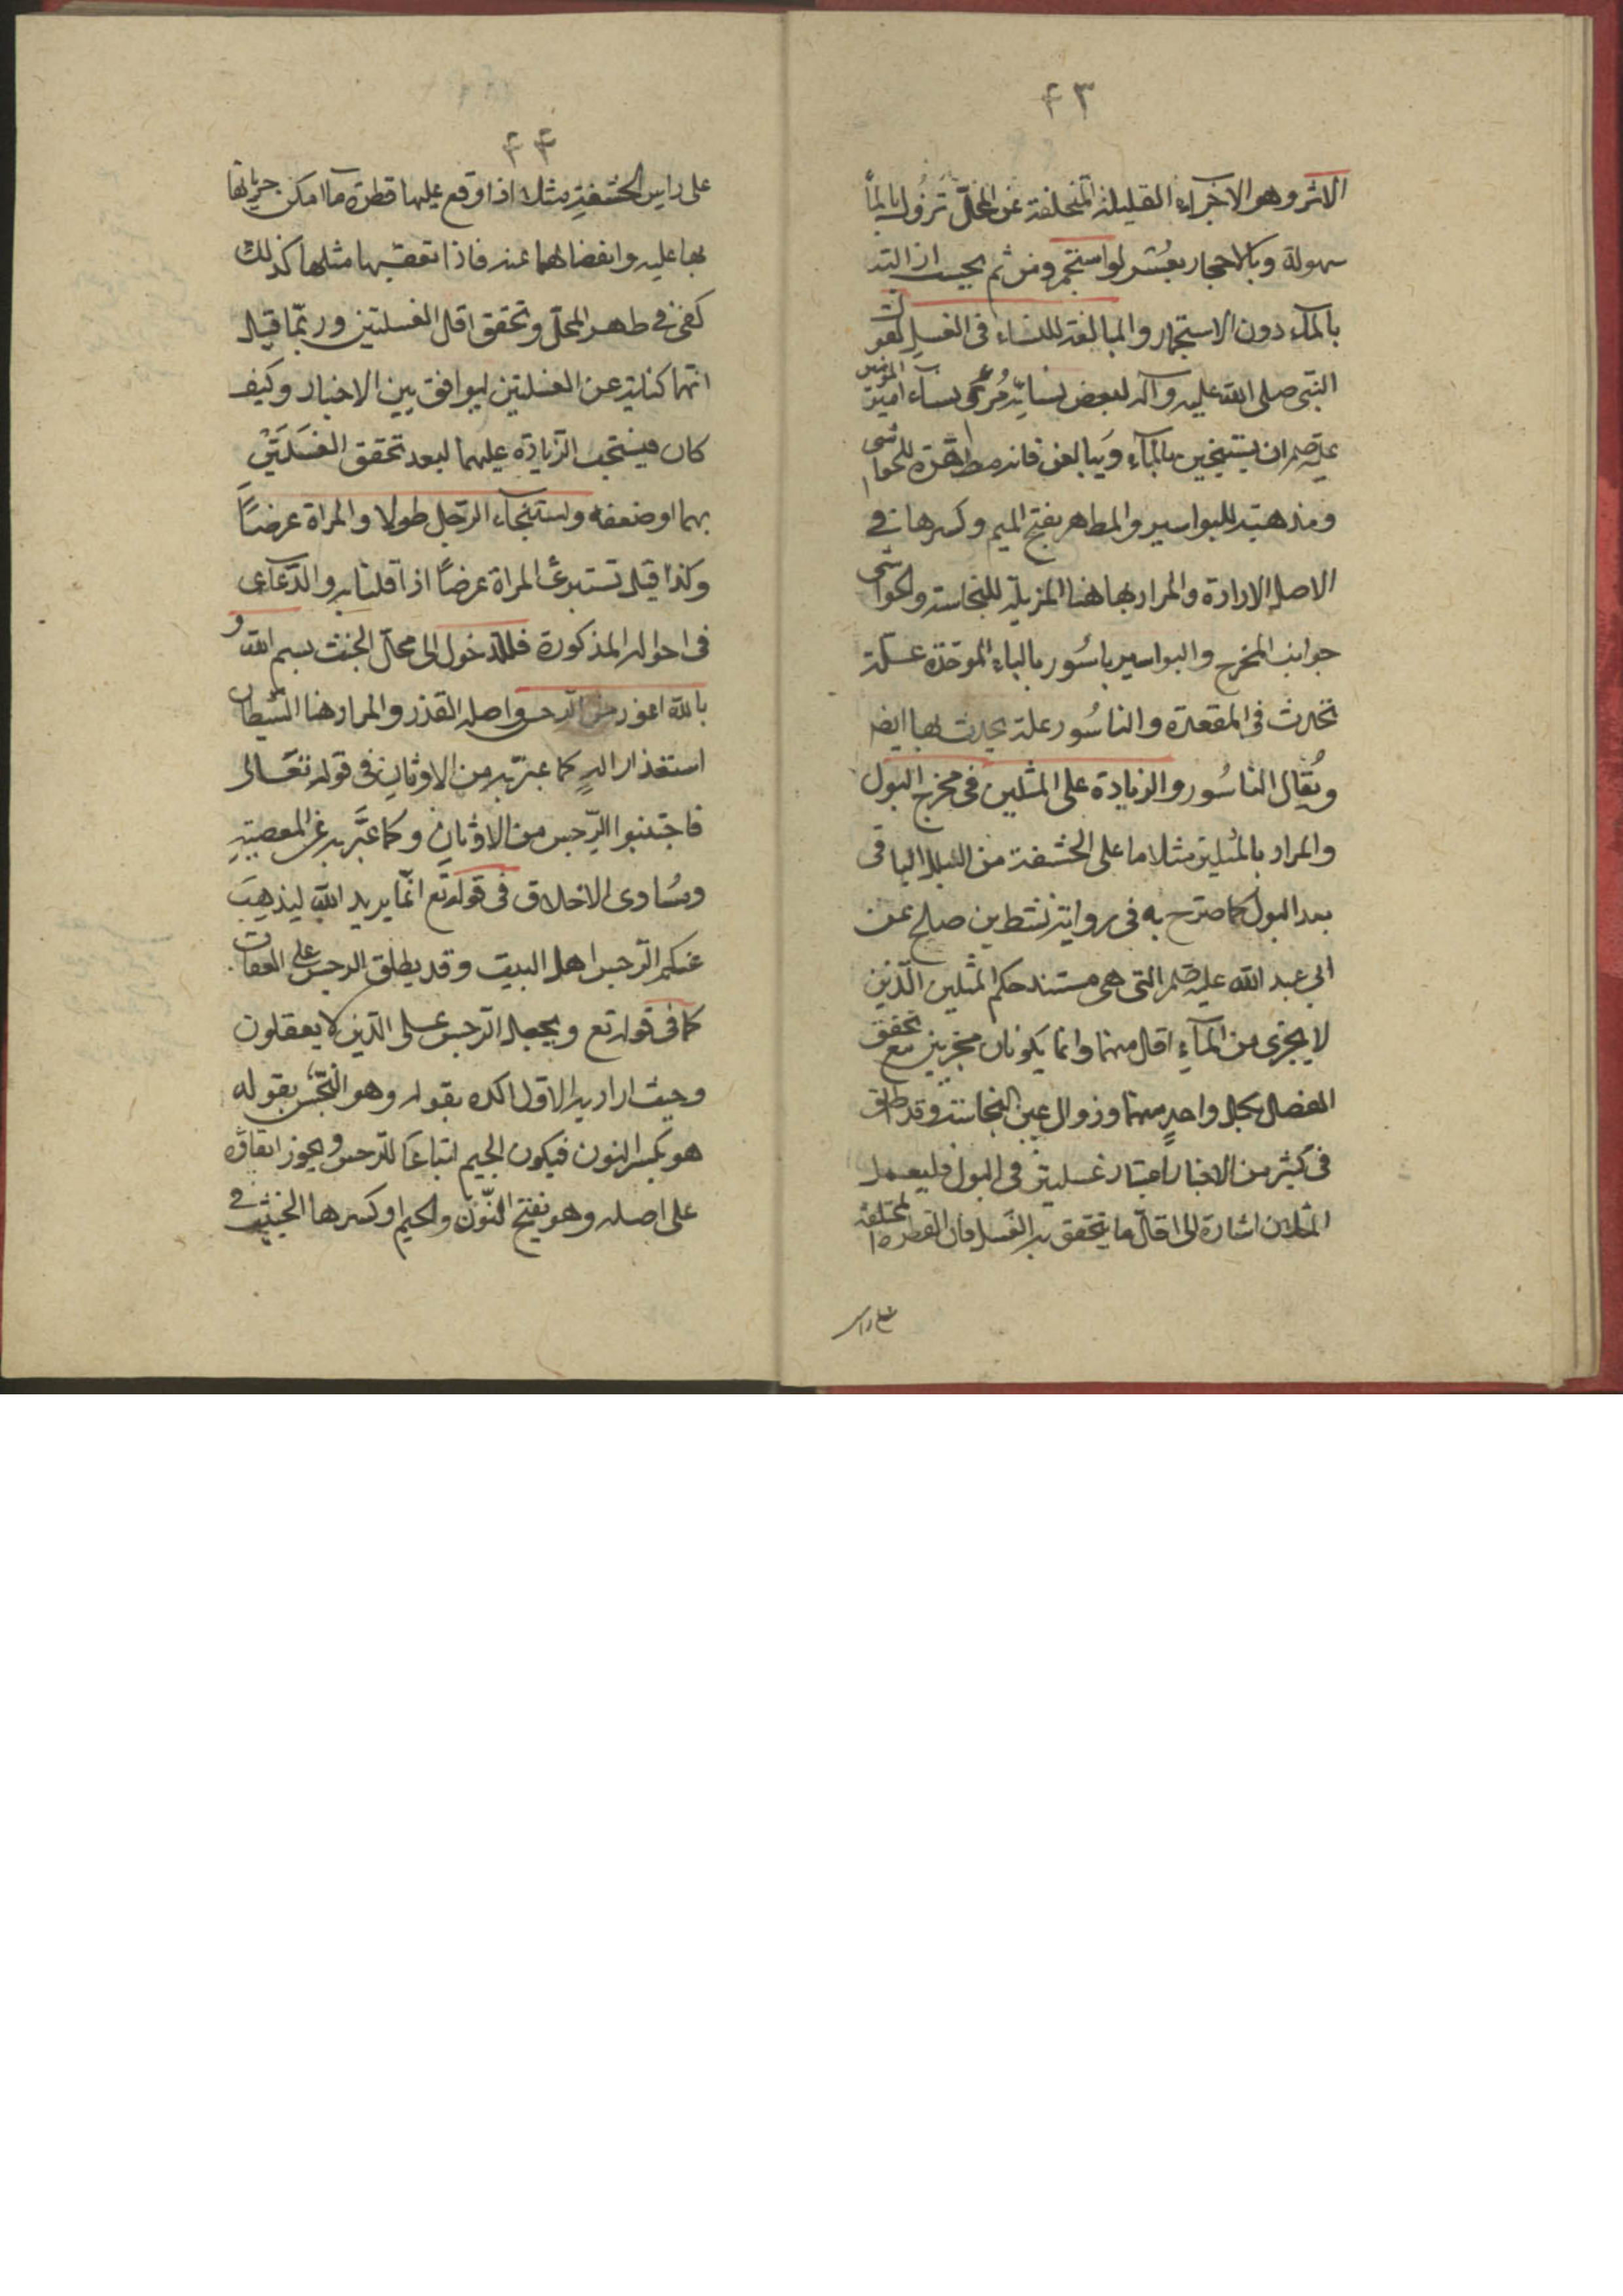 ٤٣
الاثر وهو الاجزاء القليلة المتخلفة عن المحلّ تَزُول بالمآ
سهولة وبالاحجار بعُسْر لو استجمر ومن ثم يجب ازالته
بالمآء دون الاستجمار والمبالغة للنساء فى الغسل لقول
النبى صلى الله عليه وآله لبعض نسائه مُرى نسآء المؤمنين
ان يستنجين بالمآء ويبالغن فانه مطهرة للحواشى
ومذهبة للبواسير والمطهر بفتح الميم وكسرها فى
الاصل الاداوة والمراد بها هنا المزيلة للنجاسة والحواشى
جوانب المخرج والبواسير باسُور بالباء الموحّدة علّة
تحدث فى المقعدة والناسُور علة يحدث بها ايضا
ويُقال الناسُور والزيادة على المثلين فى مخرج البول
والمراد بالمثلين مثلا ما على الحشفة من البلل الباقى
بعد البول كما صرّح به فى رواية نشيط بن صالح عن
ابى عبد الله عليه السلم التى هى مستند حكم المثلين الّذين
لا يجزى من المآء اقل منهما وانما يكونان مجزيين مع تحقق
الفصل بكل واحدٍ منهما وزوال عين النجاسة وقد اطلق
فى كثير من الاخبار اعتبار غسلتين فى البول فليعمل
المثلان اشارة الى اقلّ ما يتحقق به الغَسل فان القطرة المتخلفة
على راس
٤٤
على راس الحَشَفةِ مثلا اذا وقع عليها قطرة مآ امكن جريانها
بها عليه وانفصالهما عنه فاذا تعقبها مثلها كذلك
كفى فى طهر المحلّ وتحقق اقل الغسلتين وربّما قيل
انهما كناية عن الغسلتين ليوافق بين الاخبار وكيف
كان فيستحب الزيادة عليهما لبعد تحقق الغَسلَتَيْنِ
بهما او ضعفه واستنجآء الرّجل طولا والمراة عرضًا
وكذا قيل تستبرئ المراة عرضًا اذا قلنا به والدّعآء
فى احواله المذكورة فللدّخول الى محلّ الخبث بسم الله و
بالله اعوذ من الرّجس واصله القذر والمراد هنا الشيطان
استقذارا له كما عبّر به من الاوثان فى قوله تعَالى
فاجتنبوا الرّجس من الاوثانِ وكما عبَّر به عن المعصيةِ
ومسَاوى الاخلاق فى قوله تع انّما يريد الله ليذهِبَ
عنكم الرّجس اهل البيت وقد يطلق الرجس على العقاب
كما فى قوله تع ويجعل الرّجس على الّذين لا يعقلون
وحيث اراد به الاوّل اكده بقوله وهو النّجْس بقوله
هو بكسر النون فيكون الجيم اتباعًا للرّجس ويجوز ابقاؤه
على اصله وهو بفتح النّون والجيم او كسرها الخبيث